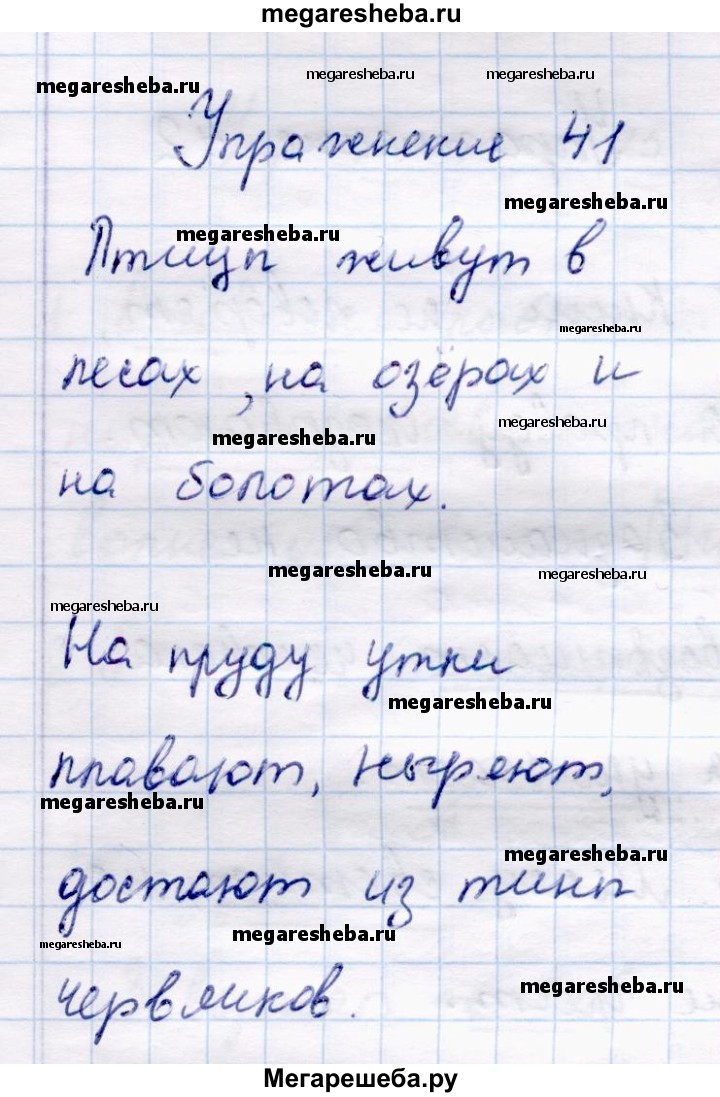 megaresheba.ru
megaresheba.ru
megaresheba.ru
megaresheba.ru
Упражнение 41
megaresheba.ru
megaresheba.ru
Птицы живут в
megaresheba.ru
лесах, на озёрах и
megaresheba.ru
megaresheba.ru
на болотах.
megaresheba.ru
megaresheba.ru
megaresheba.ru
На пруду утки
megaresheba.ru
плавают, ныряют,
megaresheba.ru
megaresheba.ru
достают из тины
megaresheba.ru
megaresheba.ru
megaresheba.ru
червяков.
Мегарешеба.ру